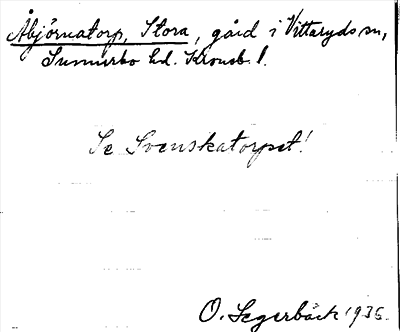 Åbjörnatorp, Stora, gård i Vittaryds sn,
Sunnerbo hd. Kronob. l.
Se Svenskatorpet!
O. Segerbäck 1936.